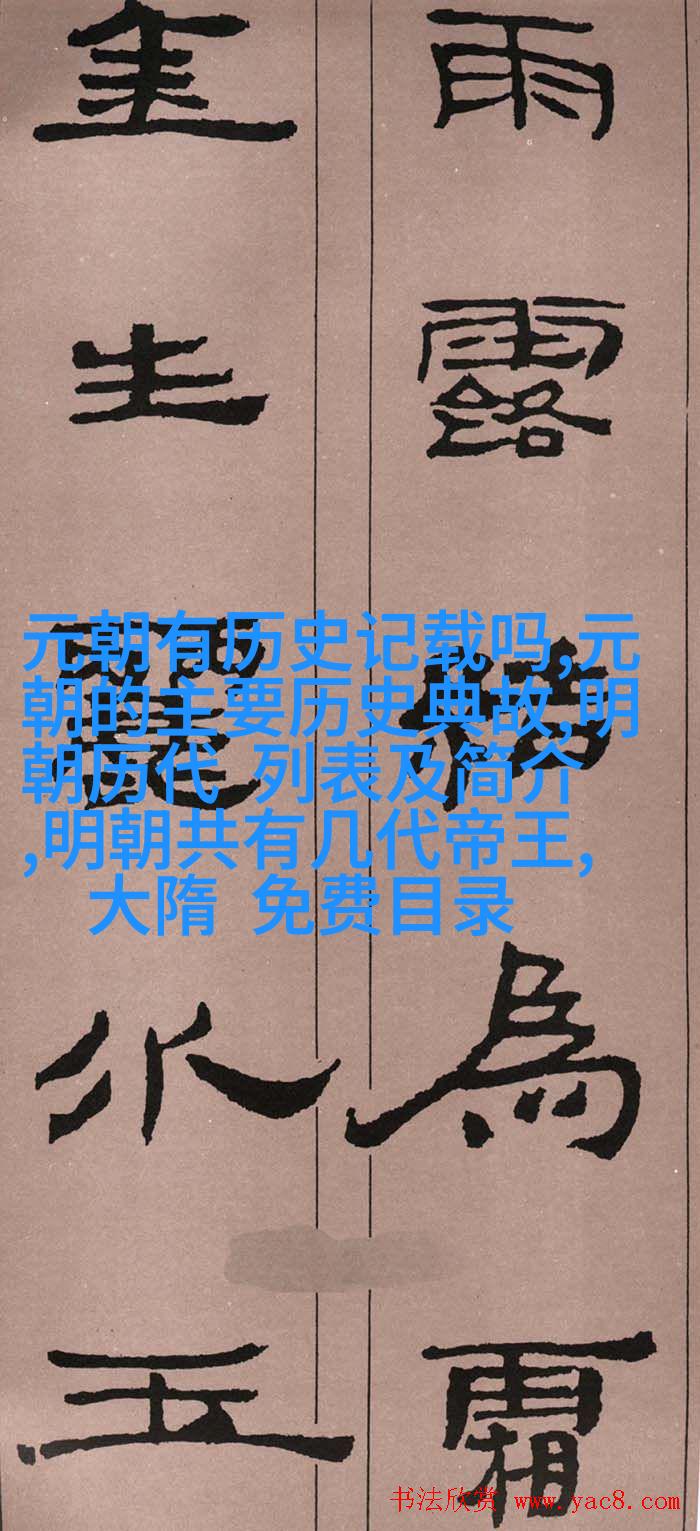 雨露結為霜
金生麗水玉
元朝有历史记载吗,元
朝的主要历史典故,明
朝历代 列表及简介
,明朝共有几代帝王,
大隋 免费目录
书法欣赏 www.yac8.com